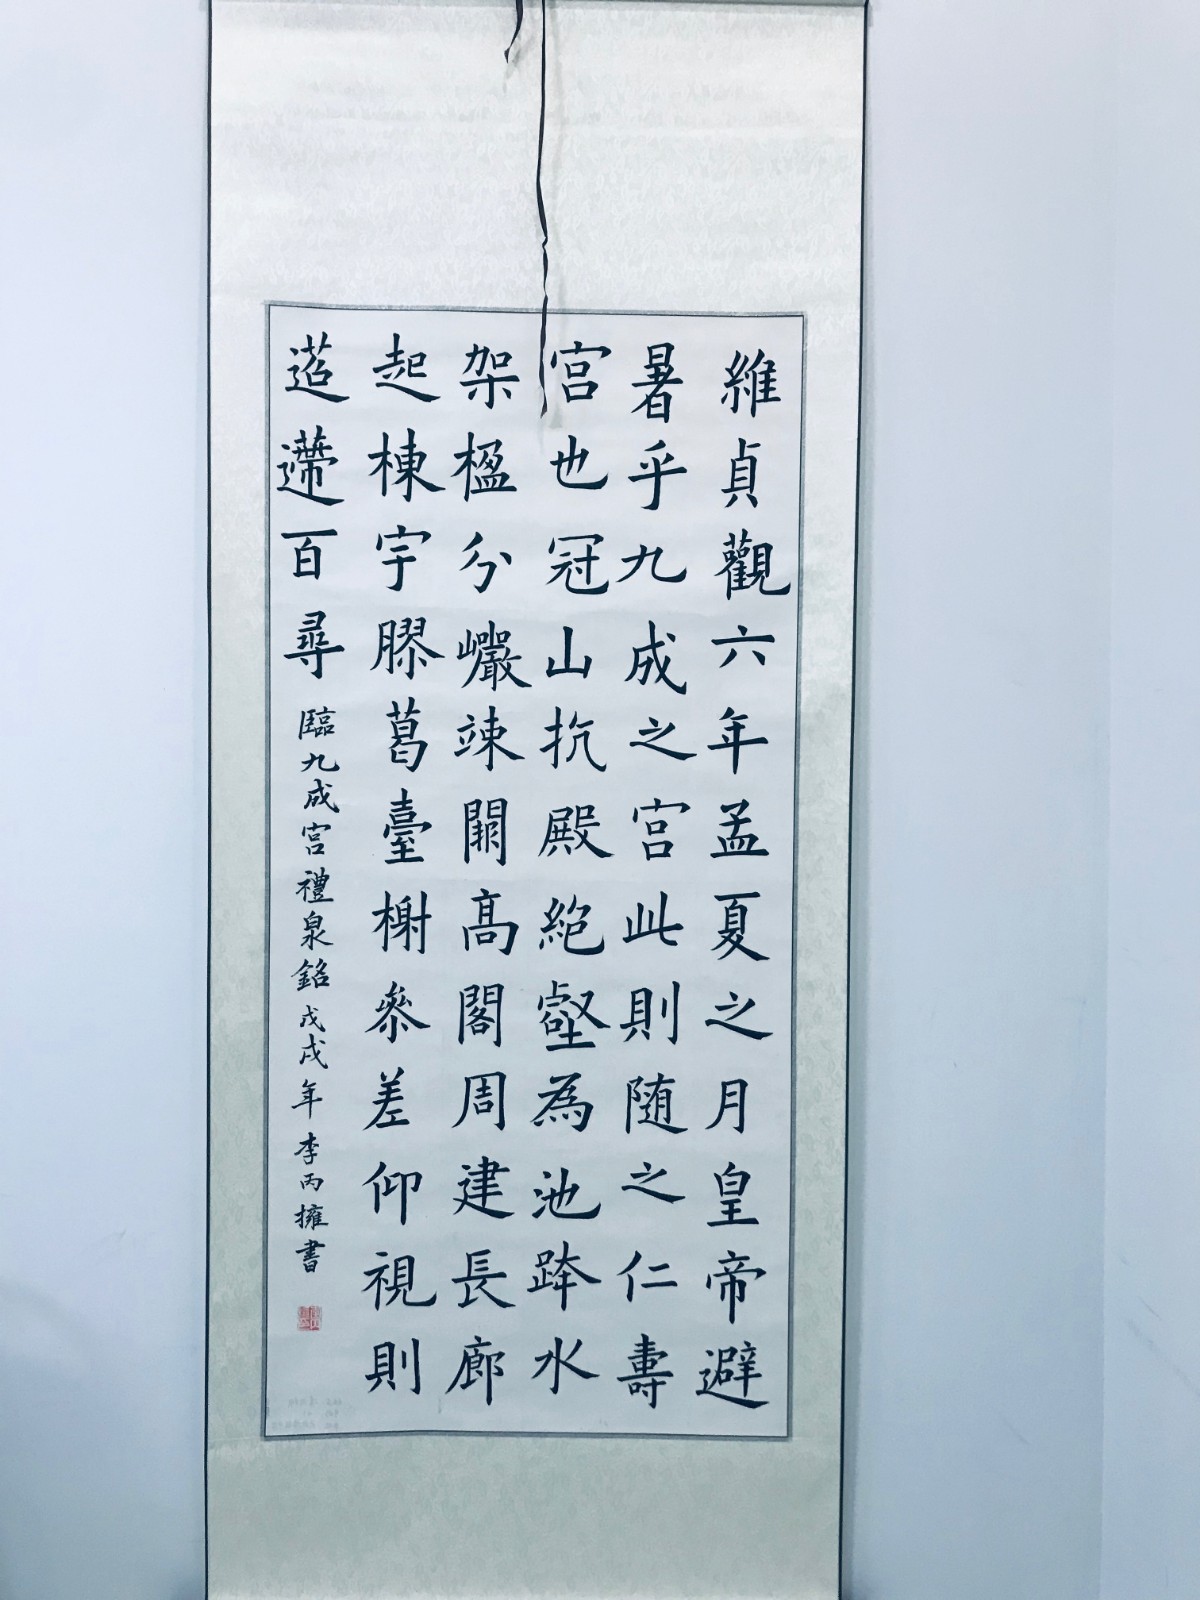 維貞觀六年孟夏之月皇帝避
暑乎九成之宮此則随之仁壽
宮也冠山抗殿絕壑為池跨水
架楹分巖竦闕高閣周建長廊
起棟宇膠葛臺榭參差仰視則
迢遰百尋
臨九成宮禮泉銘戊戌年李丙擁書